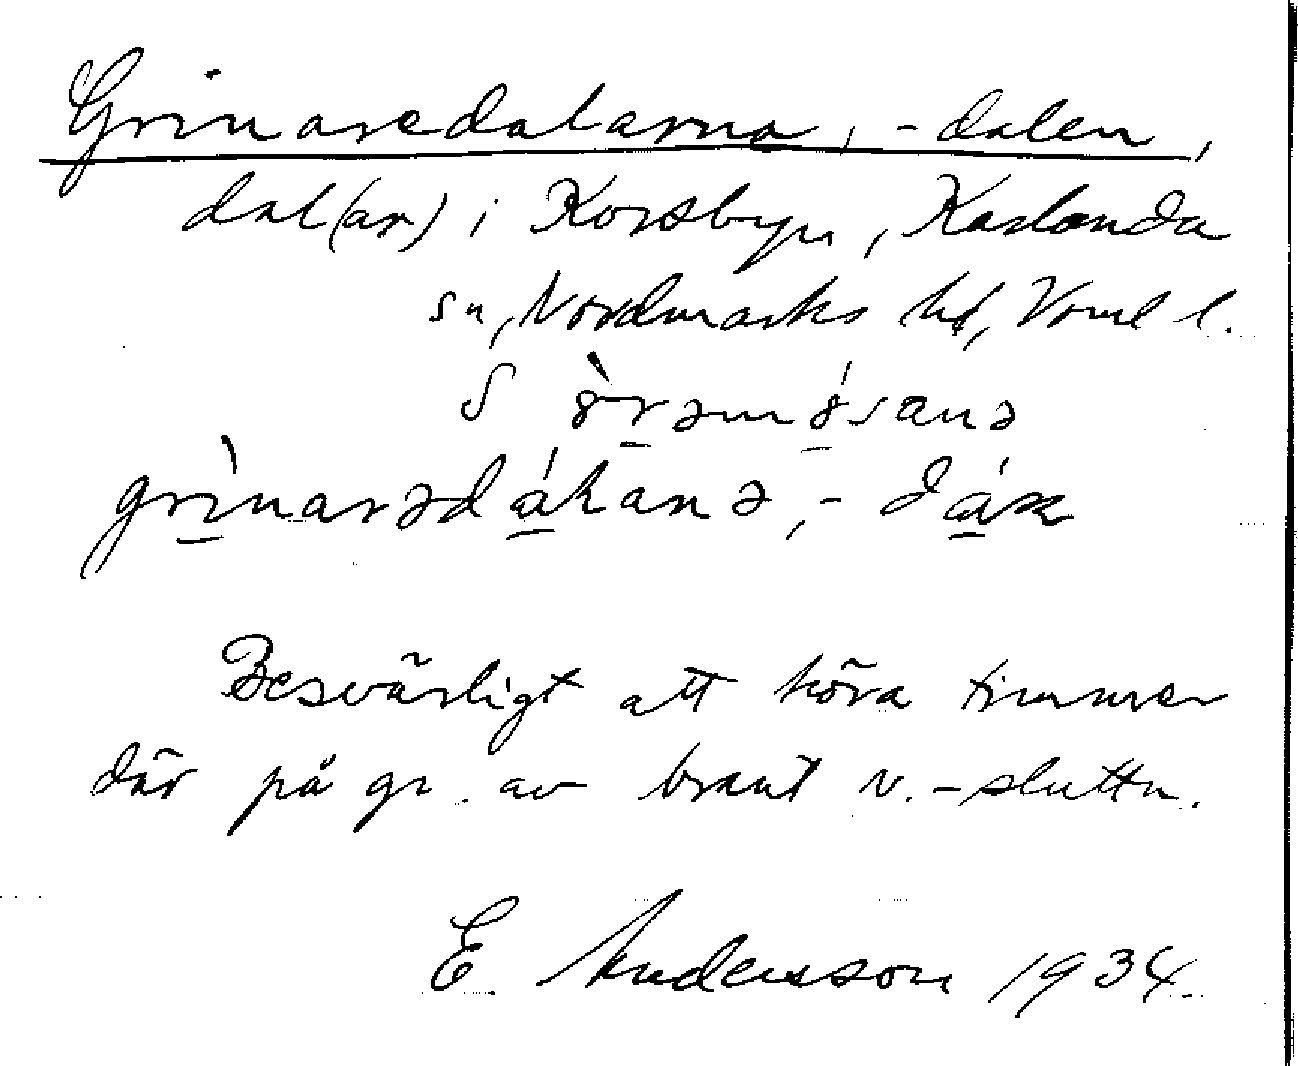 Grinaredalarna, -dalen,
dal(ar) i Korsbyn, Karlanda
sn, Nordmarks hd, Vrml l.
S
grìnarədáɫanə, - dáɫn
Besvärligt att köra timmer
där på gr. av brant v.-sluttn.
E Andersson 1934